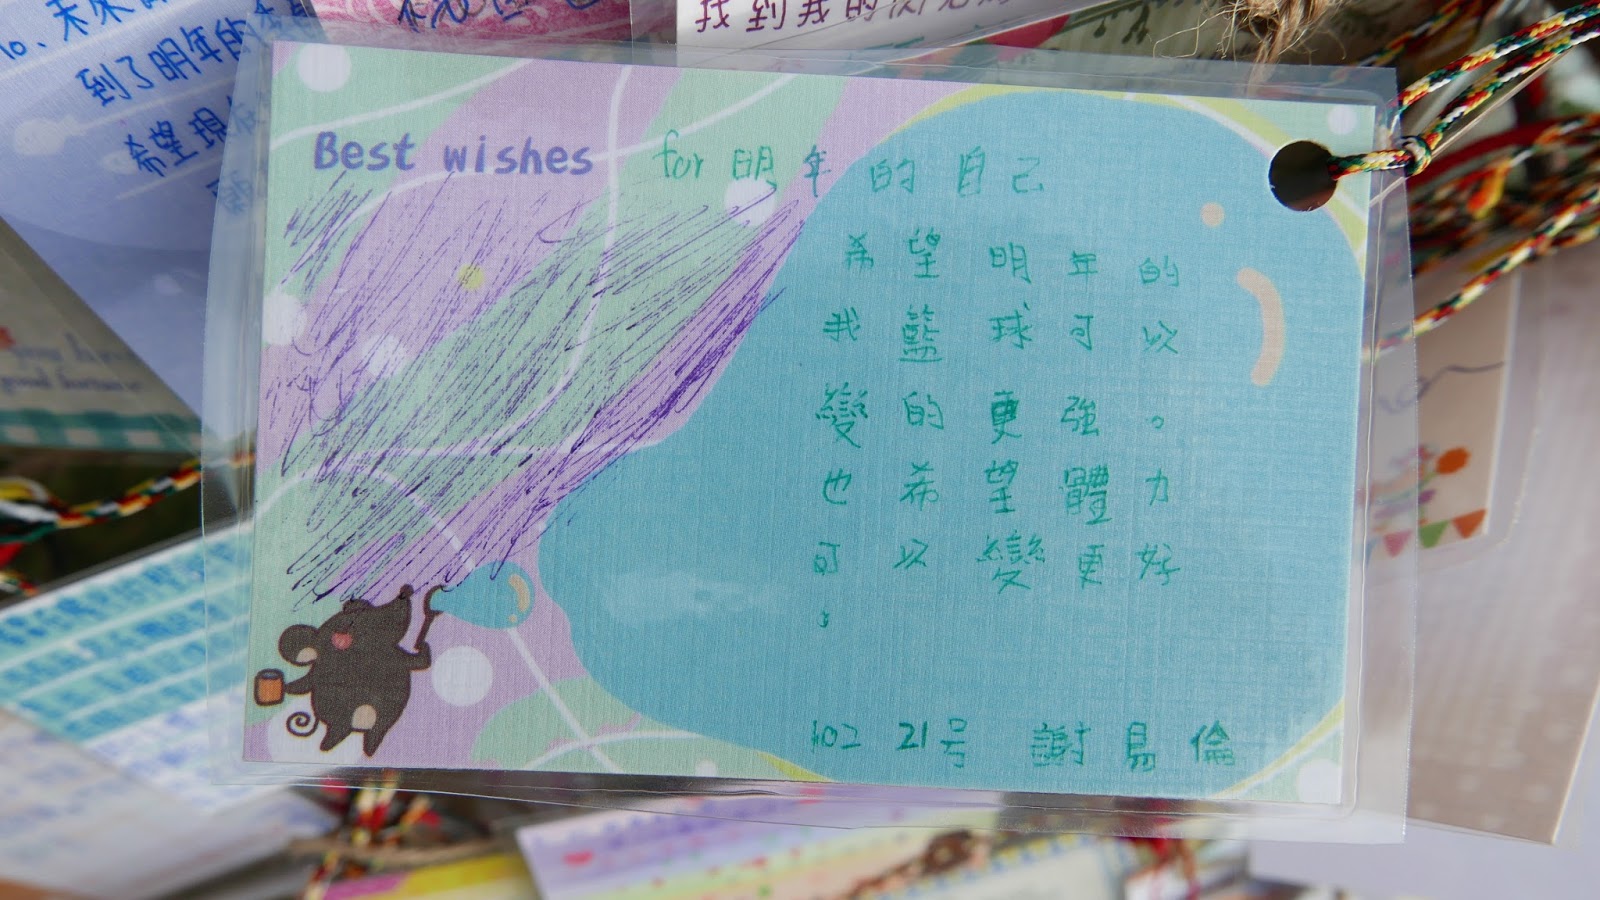 找到我的
到了明年的
希望現
Best wishes for 明年的自己
希望明年的
我籃球可以
變的更強。
也希望體力
可以變更好
。
102 21号 謝易倫